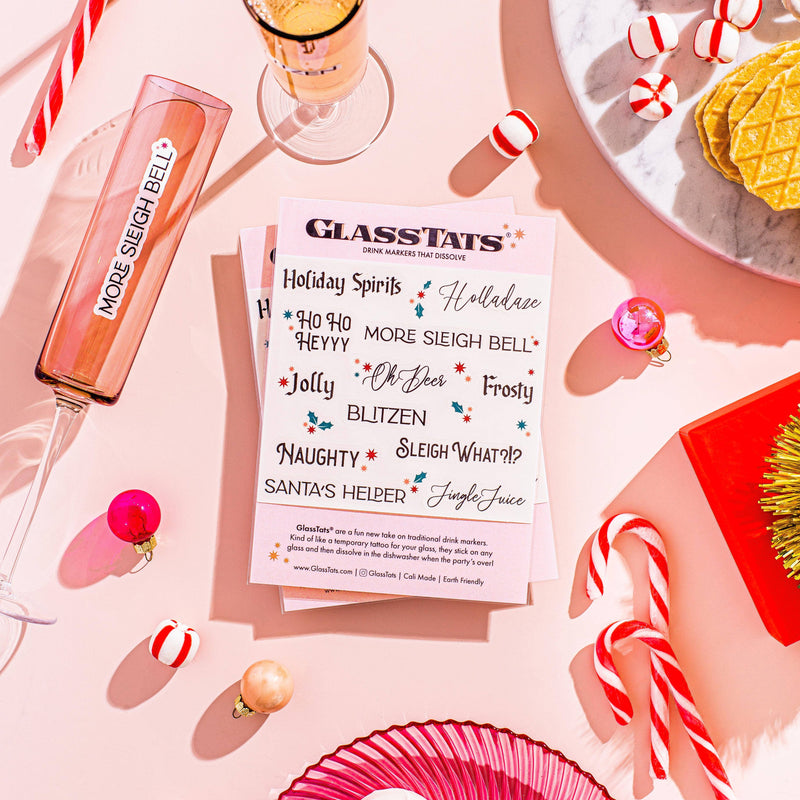 MORE SLEIGH BELL
GLASSTATS®
DRINK MARKERS THAT DISSOLVE
Holiday Spirits
Holladaze
HO HO
HEYYY
MORE SLEIGH BELL
Jolly
Oh Deer
Frosty
BLITZEN
NAUGHTY
SLEIGH WHAT?!?
SANTA'S HELPER
Jingle Juice
GlassTats® are a fun new take on traditional drink markers.
Kind of like a temporary tattoo for your glass, they stick on any
glass and then dissolve in the dishwasher when the party's over!
www.GlassTats.com | GlassTats | Cali Made | Earth Friendly